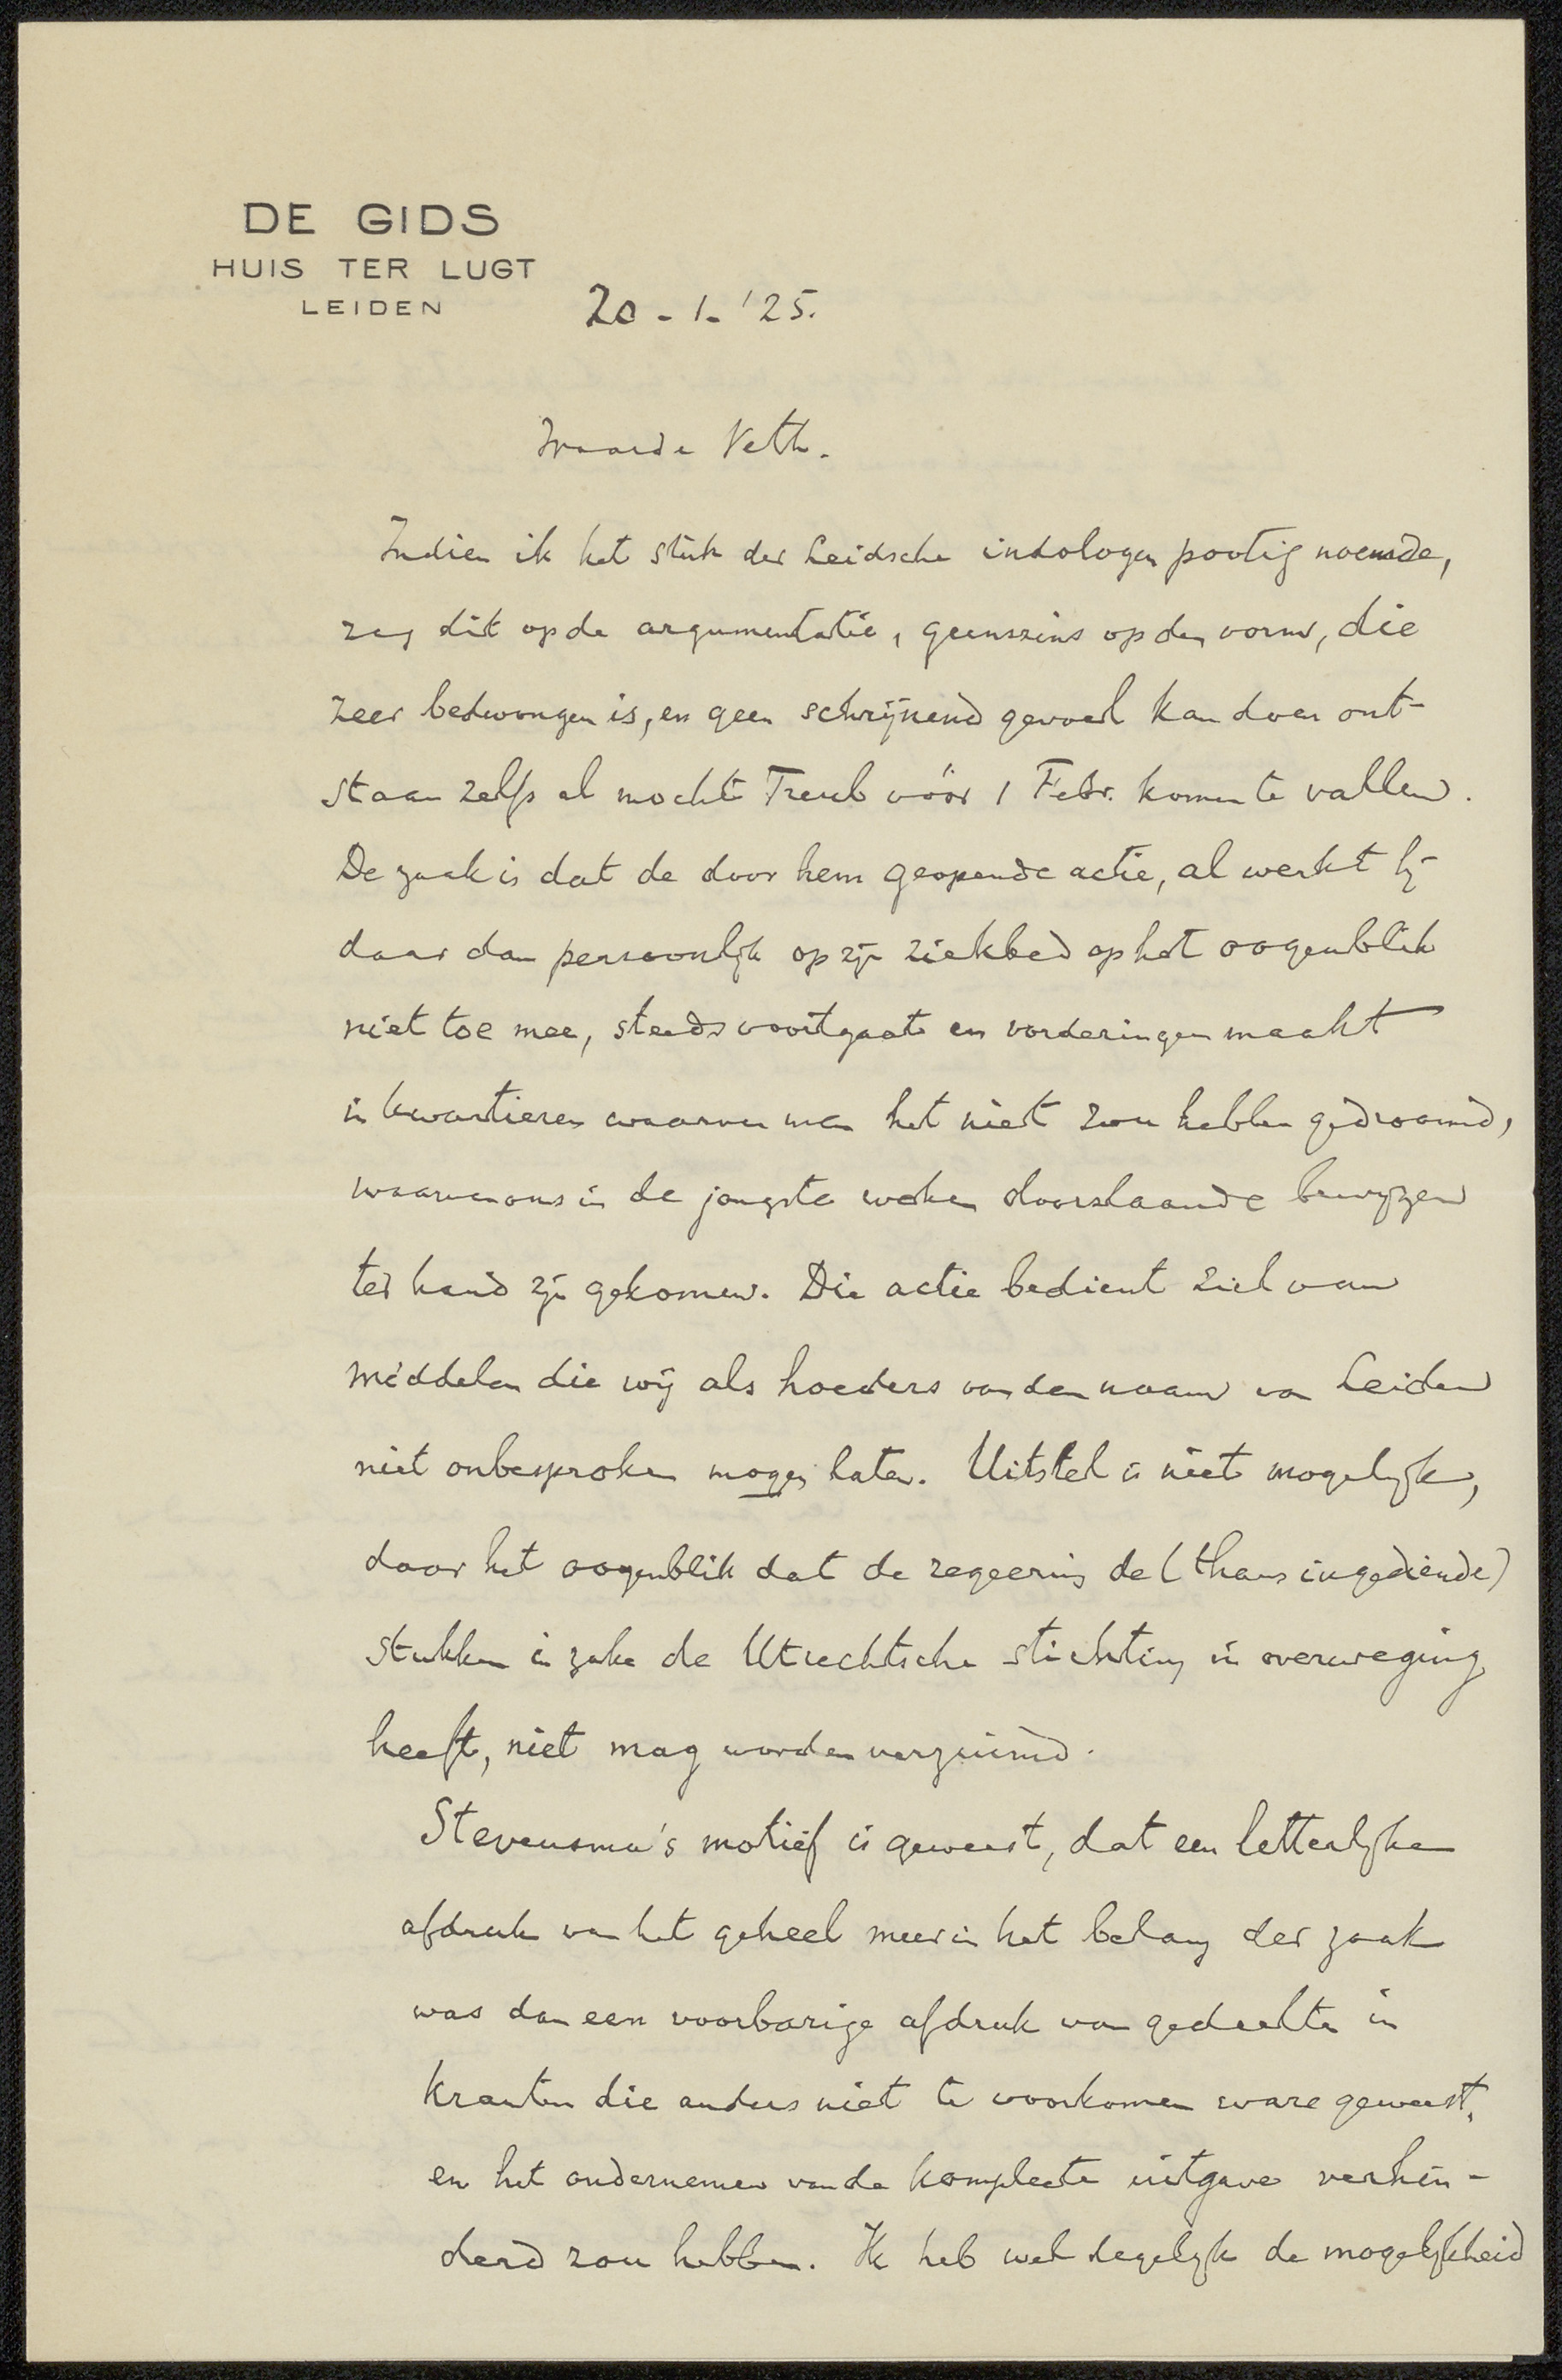 DE GIDS
HUIS TER LUGT
LEIDEN
20-1-'25.
Waarde Veth.
Indien ik het stuk der Leidsche indologen pootig noemde,
zag dit op de argumentatie, geenszins op den vorm, die
zeer bedwongen is, en geen schrijnend gevoel kan doen ont-
staan zelfs al mocht Treub vóór 1 Febr. komen te vallen.
De zaak is dat de door hem geopende actie, al werkt hij
daar dan persoonlijk op zijn ziekbed op het oogenblik
niet toe mee, steeds voortgaat en vorderingen maakt
in kwartieren waarvan men het niet zou hebben gedroomd,
waarvan ons in de jongste weken doorslaande bewijzen
ter hand zijn gekomen. Die actie bedient zich van
middelen die wij als hoeders van den naam van Leiden
niet onbesproken mogen laten. Uitstel is niet mogelijk,
daar het oogenblik dat de regeering de (thans ingediende)
stukken in zake de Utrechtsche stichting in overweging
heeft, niet mag worden verzuimd.
Stevensma's motief is geweest, dat een letterlijke
afdruk van het geheel meer in het belang der zaak
was dan een voorbarige afdruk van gedeelten in
kranten die anders niet te voorkomen ware geweest,
en het ondernemen van de kompleete uitgave verhin-
derd zou hebben. Ik heb wel degelijk de mogelijkheid